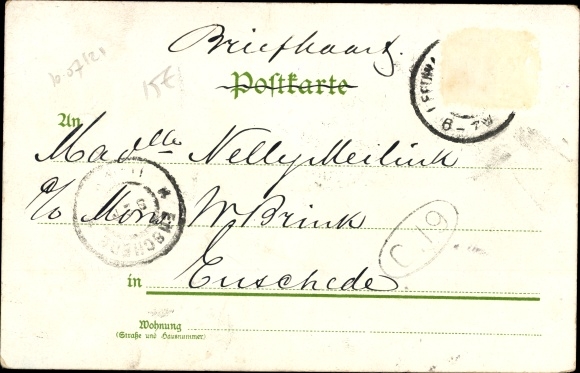 Briefkaart.
Postkarte
15€
An
Madlle Nelly Meilink
c/o Mons W Brink
ENSCHEDE
in Enschede
Wohnung
(Straße und Hausnummer)